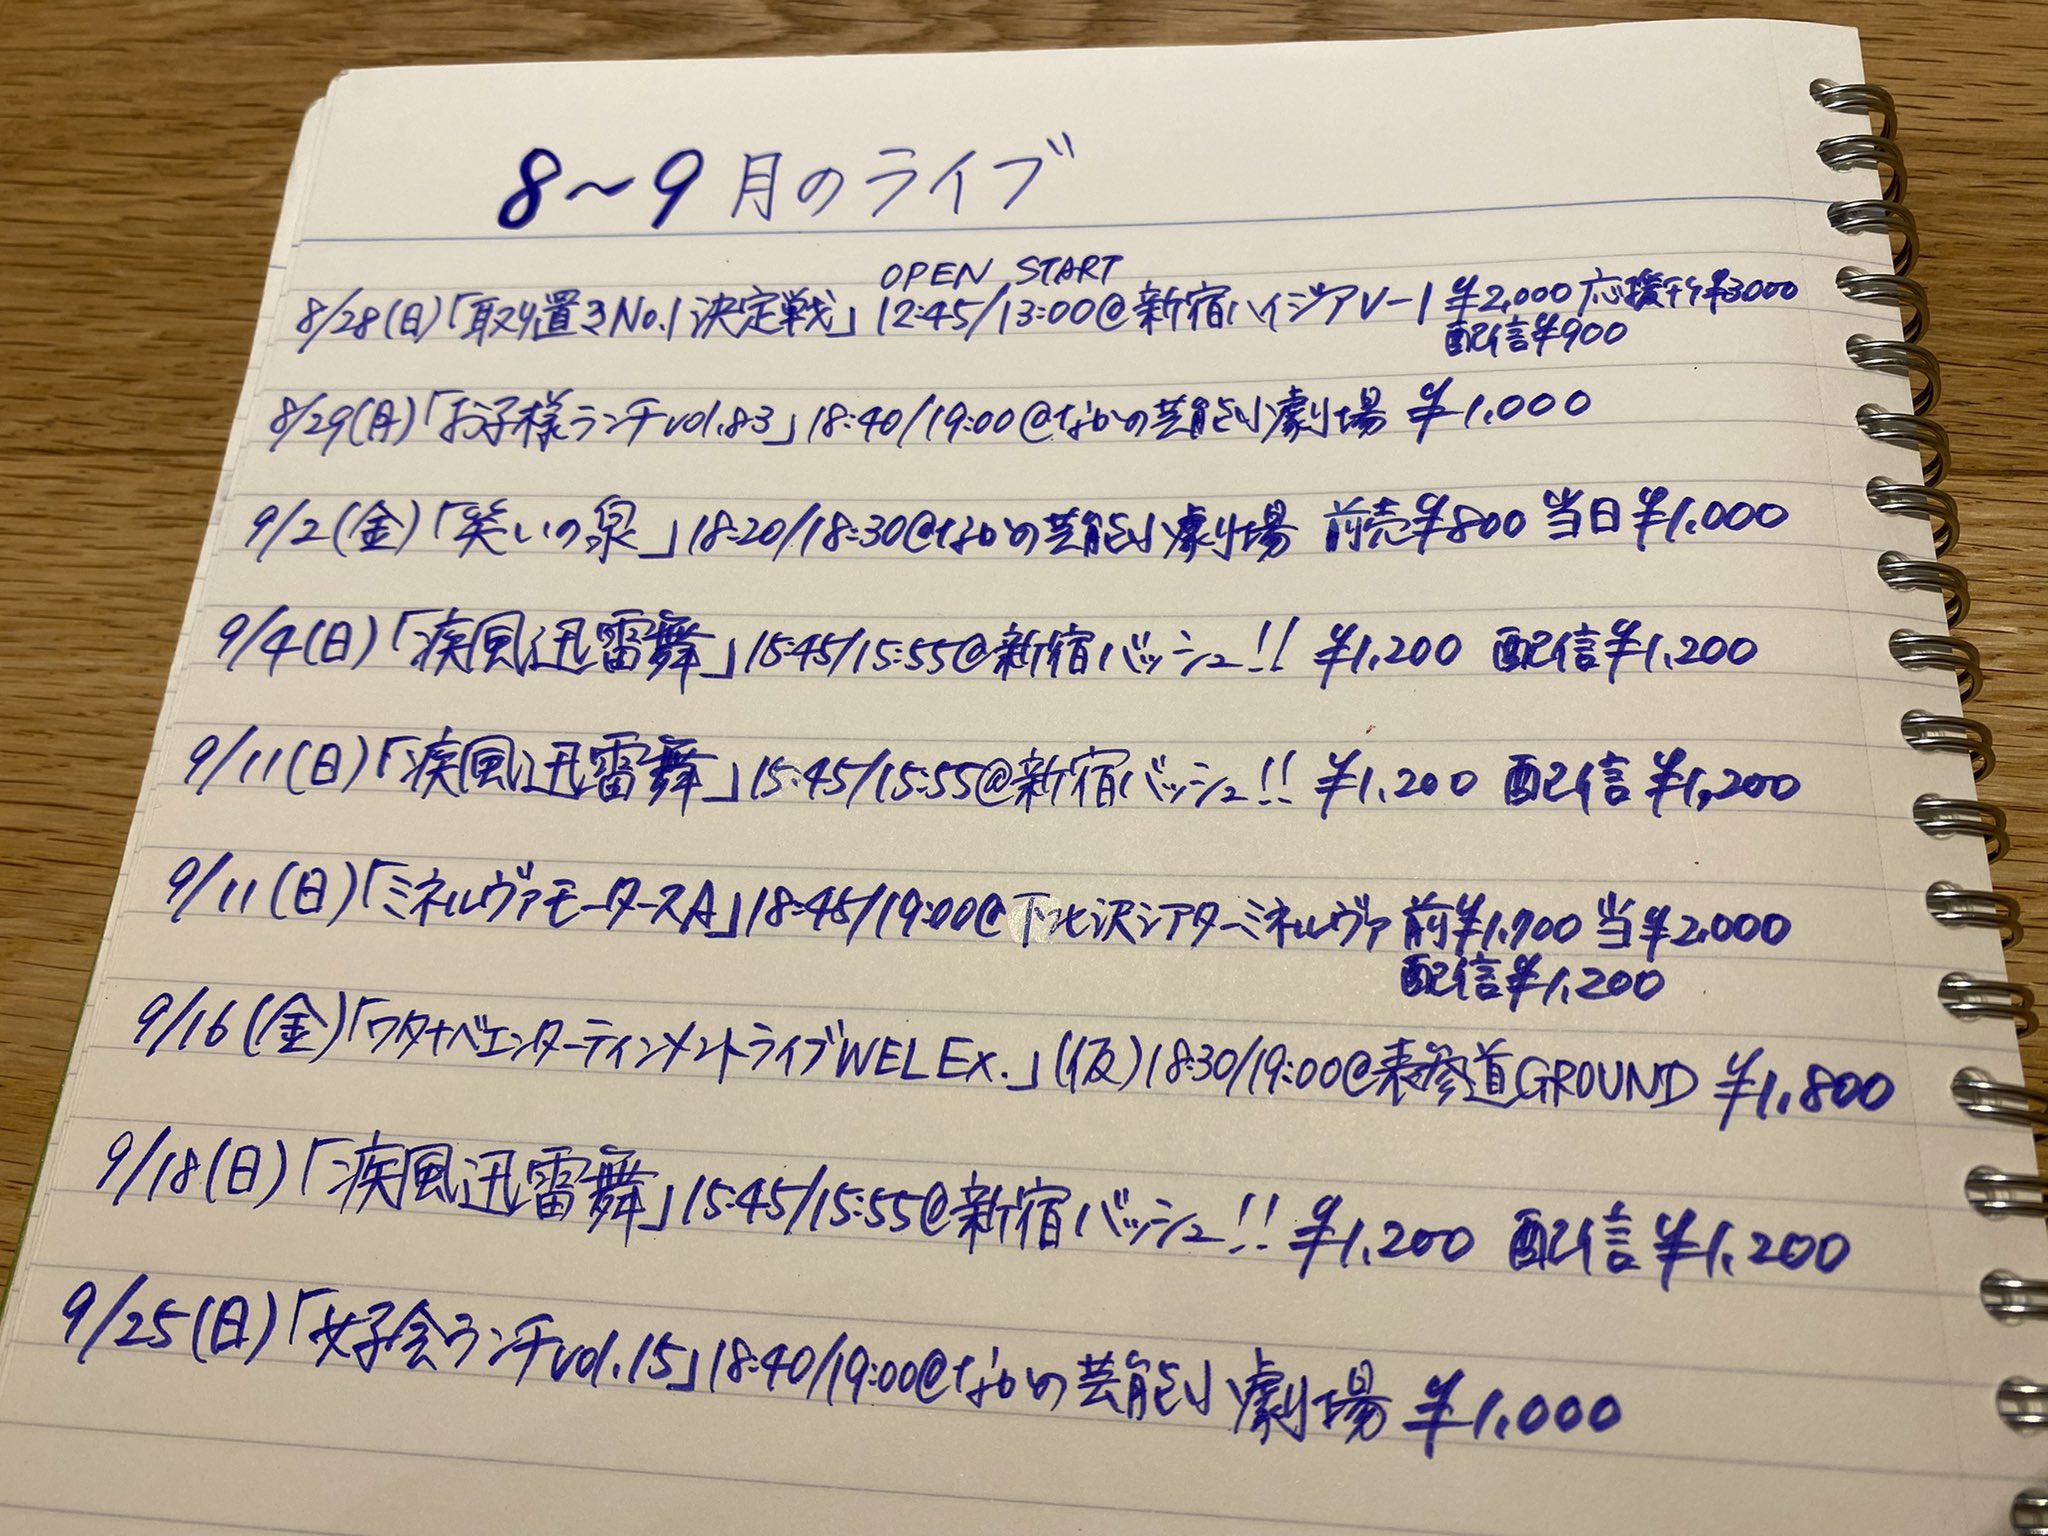 8〜9月のライブ
OPEN START
8/28(日)「取り置きNo.1決定戦」12:45/13:00@新宿ハイジアV-1 ¥2,000 応援チケ¥3000
配信¥900
8/29(月)「お子様ランチvol.83」18:40/19:00@なかの芸能小劇場 ¥1,000
9/2(金)「笑いの泉」18:20/18:30@なかの芸能小劇場 前売¥800 当日¥1,000
9/4(日)「疾風迅雷舞」15:45/15:55@新宿バッシュ!! ¥1,200 配信¥1,200
9/11(日)「疾風迅雷舞」15:45/15:55@新宿バッシュ!! ¥1,200 配信¥1,200
9/11(日)「ミネルヴァモータースA」18:45/19:00@下北沢シアターミネルヴァ 前¥1,700 当¥2,000
配信¥1,200
9/16(金)「ワタナベエンターティンメントライブWEL Ex.」(仮)18:30/19:00@表参道GROUND ¥1,800
9/18(日)「疾風迅雷舞」15:45/15:55@新宿バッシュ!! ¥1,200 配信¥1,200
9/25(日)「女子会ランチvol.15」18:40/19:00@なかの芸能小劇場 ¥1,000